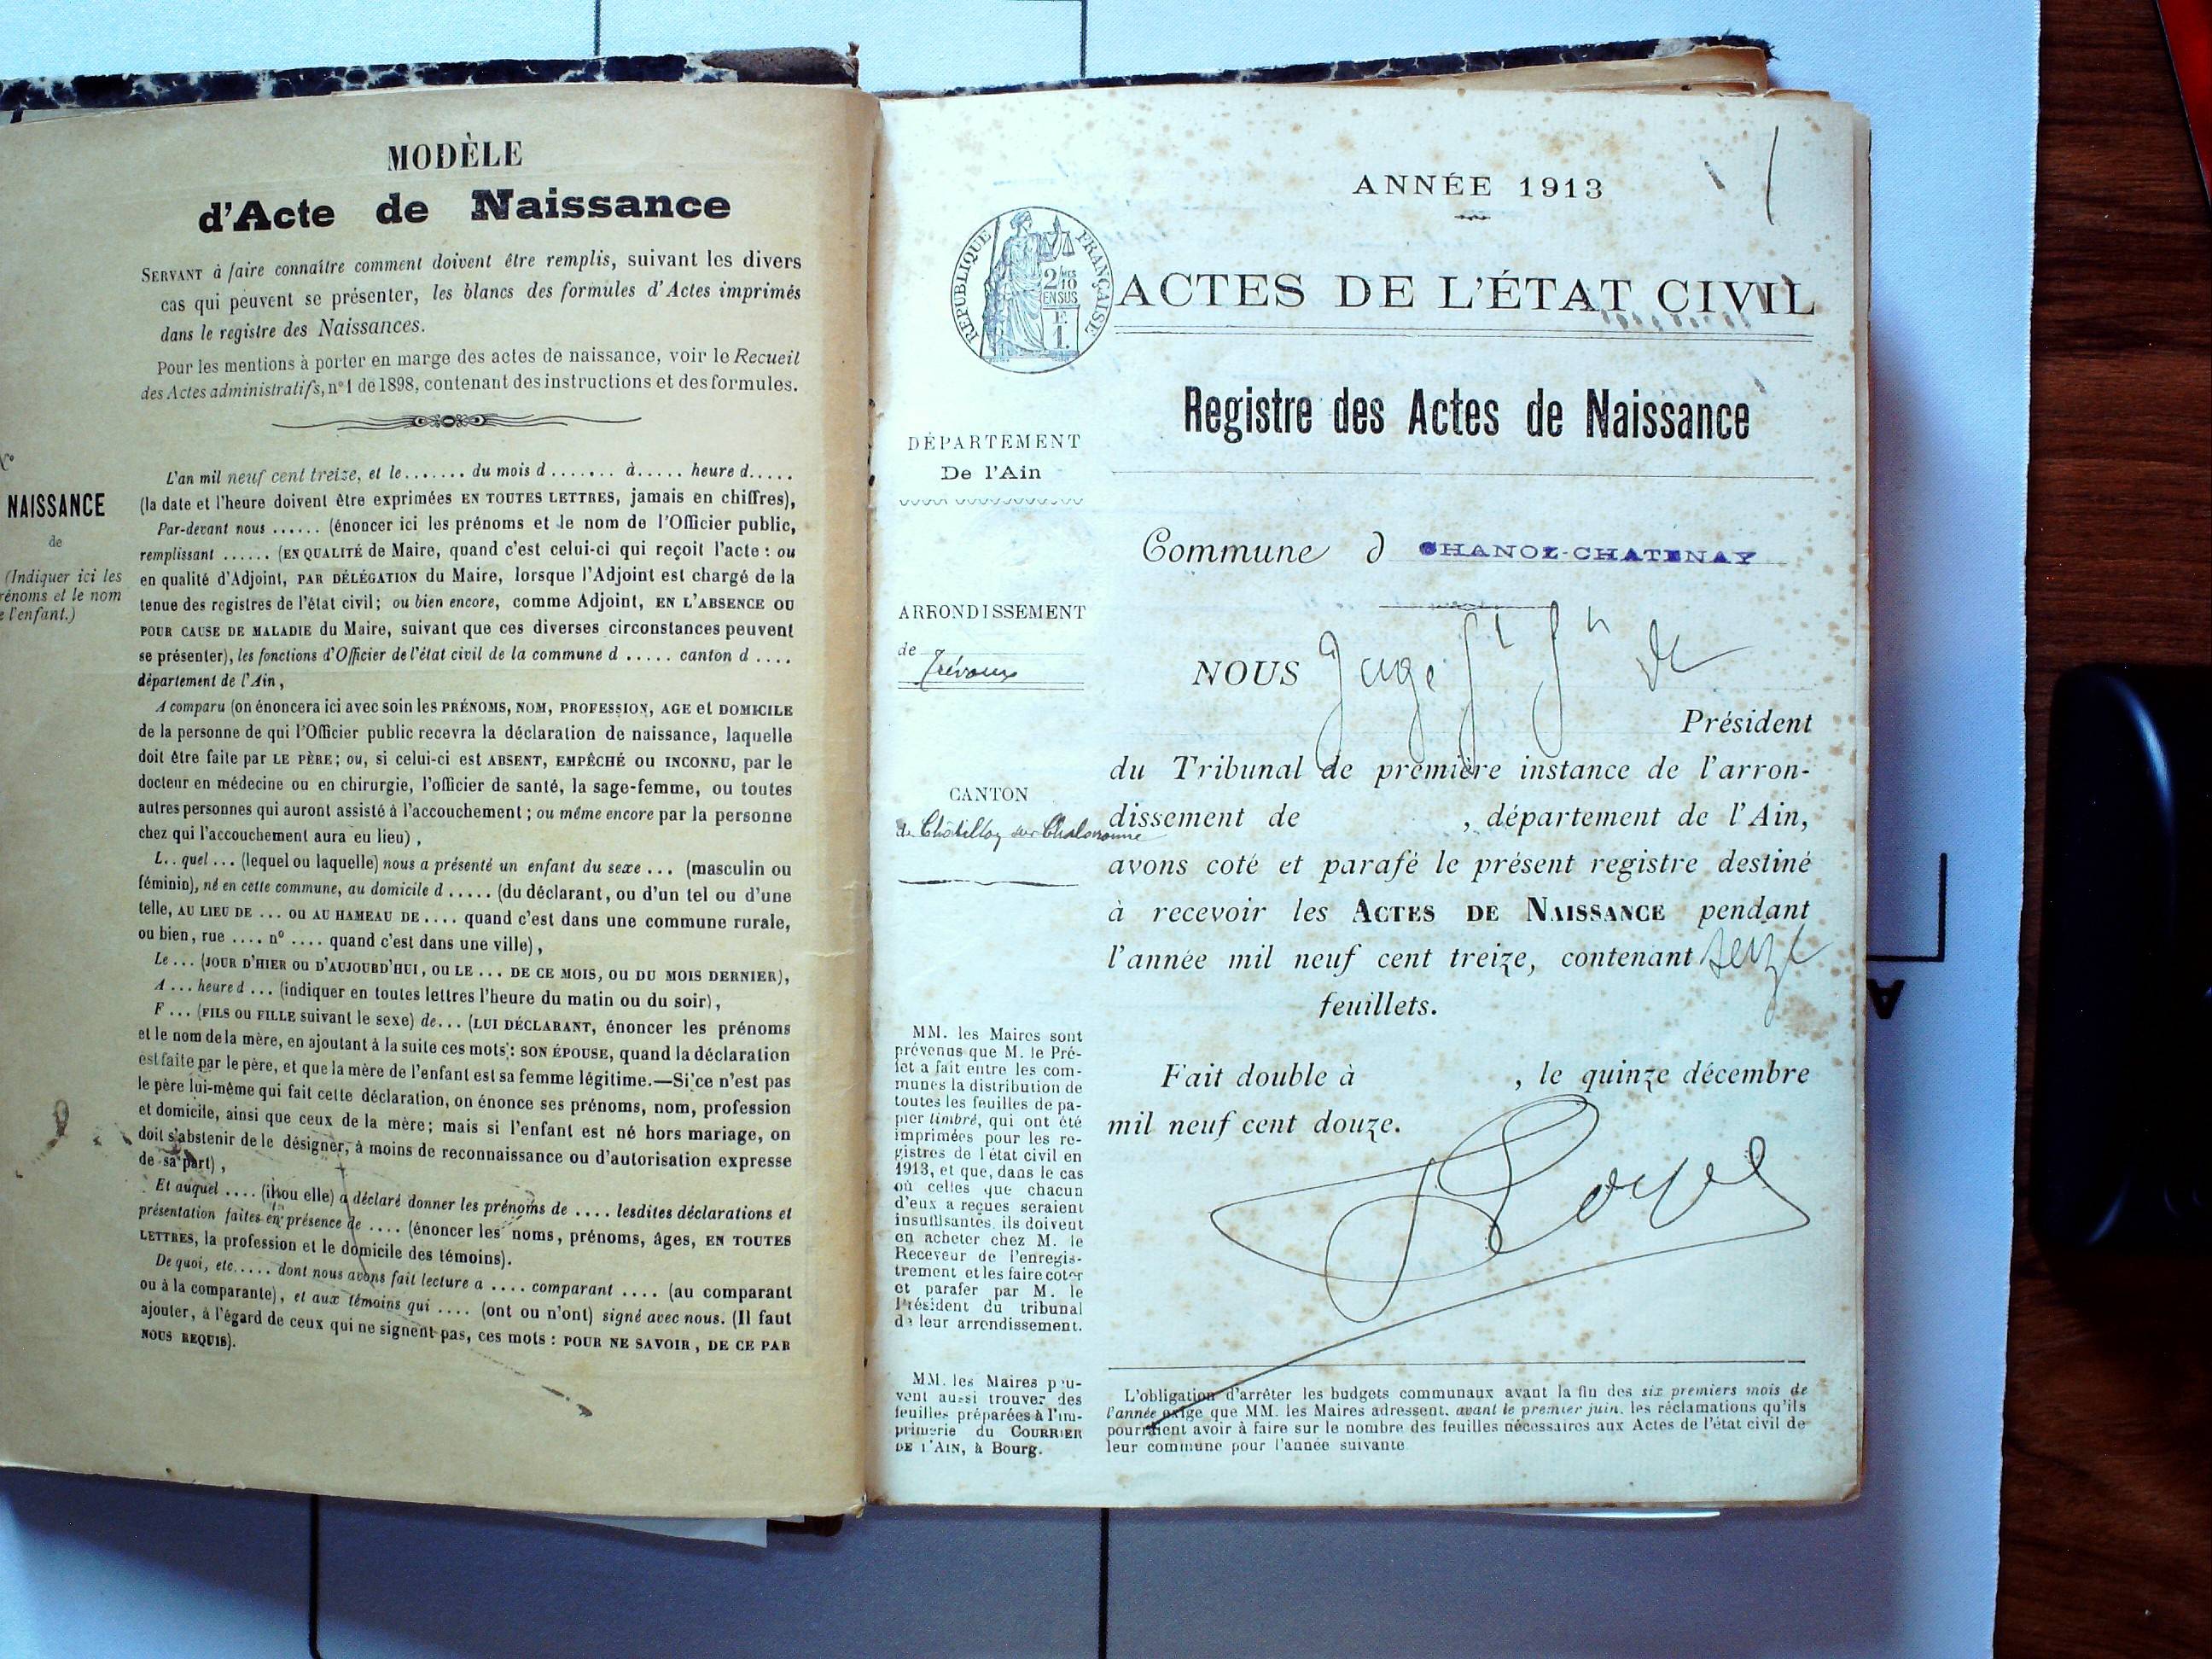 MODÈLE
d'Acte de Naissance
SERVANT à faire connaître comment doivent être remplis, suivant les divers
cas qui peuvent se présenter, les blancs des formules d'Actes imprimés
dans le registre des Naissances.
Pour les mentions à porter en marge des actes de naissance, voir le Recueil
des Actes administratifs, nº 1 de 1898, contenant des instructions et des formules.
NAISSANCE
de
(Indiquer ici les
rénoms et le nom
e l'enfant.)
L'an mil neuf cent treize, et le ....... du mois d ....... à ..... heure d.....
(la date et l'heure doivent être exprimées EN TOUTES LETTRES, jamais en chiffres),
Par-devant nous ...... (énoncer ici les prénoms et le nom de l'Officier public,
remplissant ...... (EN QUALITÉ de Maire, quand c'est celui-ci qui reçoit l'acte : ou
en qualité d'Adjoint, PAR DÉLÉGATION du Maire, lorsque l'Adjoint est chargé de la
tenue des registres de l'état civil; ou bien encore, comme Adjoint, EN L'ABSENCE OU
POUR CAUSE DE MALADIE du Maire, suivant que ces diverses circonstances peuvent
se présenter), les fonctions d'Officier de l'état civil de la commune d ..... canton d ....
département de l'Ain,
A comparu (on énoncera ici avec soin les PRÉNOMS, NOM, PROFESSION, AGE et DOMICILE
de la personne de qui l'Officier public recevra la déclaration de naissance, laquelle
doit être faite par LE PÈRE; ou, si celui-ci est ABSENT, EMPÊCHÉ OU INCONNU, par le
docteur en médecine ou en chirurgie, l'officier de santé, la sage-femme, ou toutes
autres personnes qui auront assisté à l'accouchement ; ou même encore par la personne
chez qui l'accouchement aura eu lieu) ,
L.. quel ... (lequel ou laquelle) nous a présenté un enfant du sexe ... (masculin ou
féminin), né en cette commune, au domicile d ..... (du déclarant, ou d'un tel ou d'une
telle, AU LIEU DE ... OU AU HAMEAU DE .... quand c'est dans une commune rurale,
ou bien, rue .... nº .... quand c'est dans une ville) ,
Le ... (JOUR D'HIER OU D'AUJOURD'HUI, OU LE ... DE CE MOIS, OU DU MOIS DERNIER),
A ... heure d ... (indiquer en toutes lettres l'heure du matin ou du soir) ,
F ... (FILS OU FILLE suivant le sexe) de... (LUI DÉCLARANT, énoncer les prénoms
et le nom de la mère, en ajoutant à la suite ces mots : SON ÉPOUSE, quand la déclaration
est faite par le père, et que la mère de l'enfant est sa femme légitime.—Si ce n'est pas
le père lui-même qui fait cette déclaration, on énonce ses prénoms, nom, profession
et domicile, ainsi que ceux de la mère; mais si l'enfant est né hors mariage, on
doit s'abstenir de le désigner, à moins de reconnaissance ou d'autorisation expresse
de sa part) ,
Et auquel .... (il ou elle) a déclaré donner les prénoms de .... lesdites déclarations et
présentation faites en présence de .... (énoncer les noms, prénoms, âges, EN TOUTES
LETTRES, la profession et le domicile des témoins).
De quoi, etc..... dont nous avons fait lecture a .... comparant .... (au comparant
ou à la comparante), et aux témoins qui .... (ont ou n'ont) signé avec nous. (Il faut
ajouter, à l'égard de ceux qui ne signent pas, ces mots : POUR NE SAVOIR , DE CE PAR
NOUS REQUIS).
ANNÉE 1913
RÉPUBLIQUE FRANÇAISE
2/10 MES
EN SUS
F
1.
ACTES DE L'ÉTAT CIVIL
Registre des Actes de Naissance
DÉPARTEMENT
De l'Ain
Commune d CHANOZ-CHATENAY
ARRONDISSEMENT
de
Trévoux
NOUS Juge de
Président
du Tribunal de première instance de l'arron-
CANTON
de Châtillon sur Chalaronne
dissement de , département de l'Ain,
avons coté et parafé le présent registre destiné
à recevoir les ACTES DE NAISSANCE pendant
l'année mil neuf cent treize, contenant seize
feuillets.
Fait double à , le quinze décembre
mil neuf cent douze.
MM. les Maires sont
prévenus que M. le Pré-
fet a fait entre les com-
munes la distribution de
toutes les feuilles de pa-
pier timbré, qui ont été
imprimées pour les re-
gistres de l'état civil en
1913, et que, dans le cas
où celles que chacun
d'eux a reçues seraient
insuffisantes, ils doivent
en acheter chez M. le
Receveur de l'enregis-
trement et les faire coter
et parafer par M. le
Président du tribunal
de leur arrondissement.
MM. les Maires peu-
vent aussi trouver des
feuilles préparées à l'im-
primerie du COURRIER
DE L'AIN, à Bourg.
L'obligation d'arrêter les budgets communaux avant la fin des six premiers mois de
l'année exige que MM. les Maires adressent, avant le premier juin, les réclamations qu'ils
pourraient avoir à faire sur le nombre des feuilles nécessaires aux Actes de l'état civil de
leur commune pour l'année suivante
A